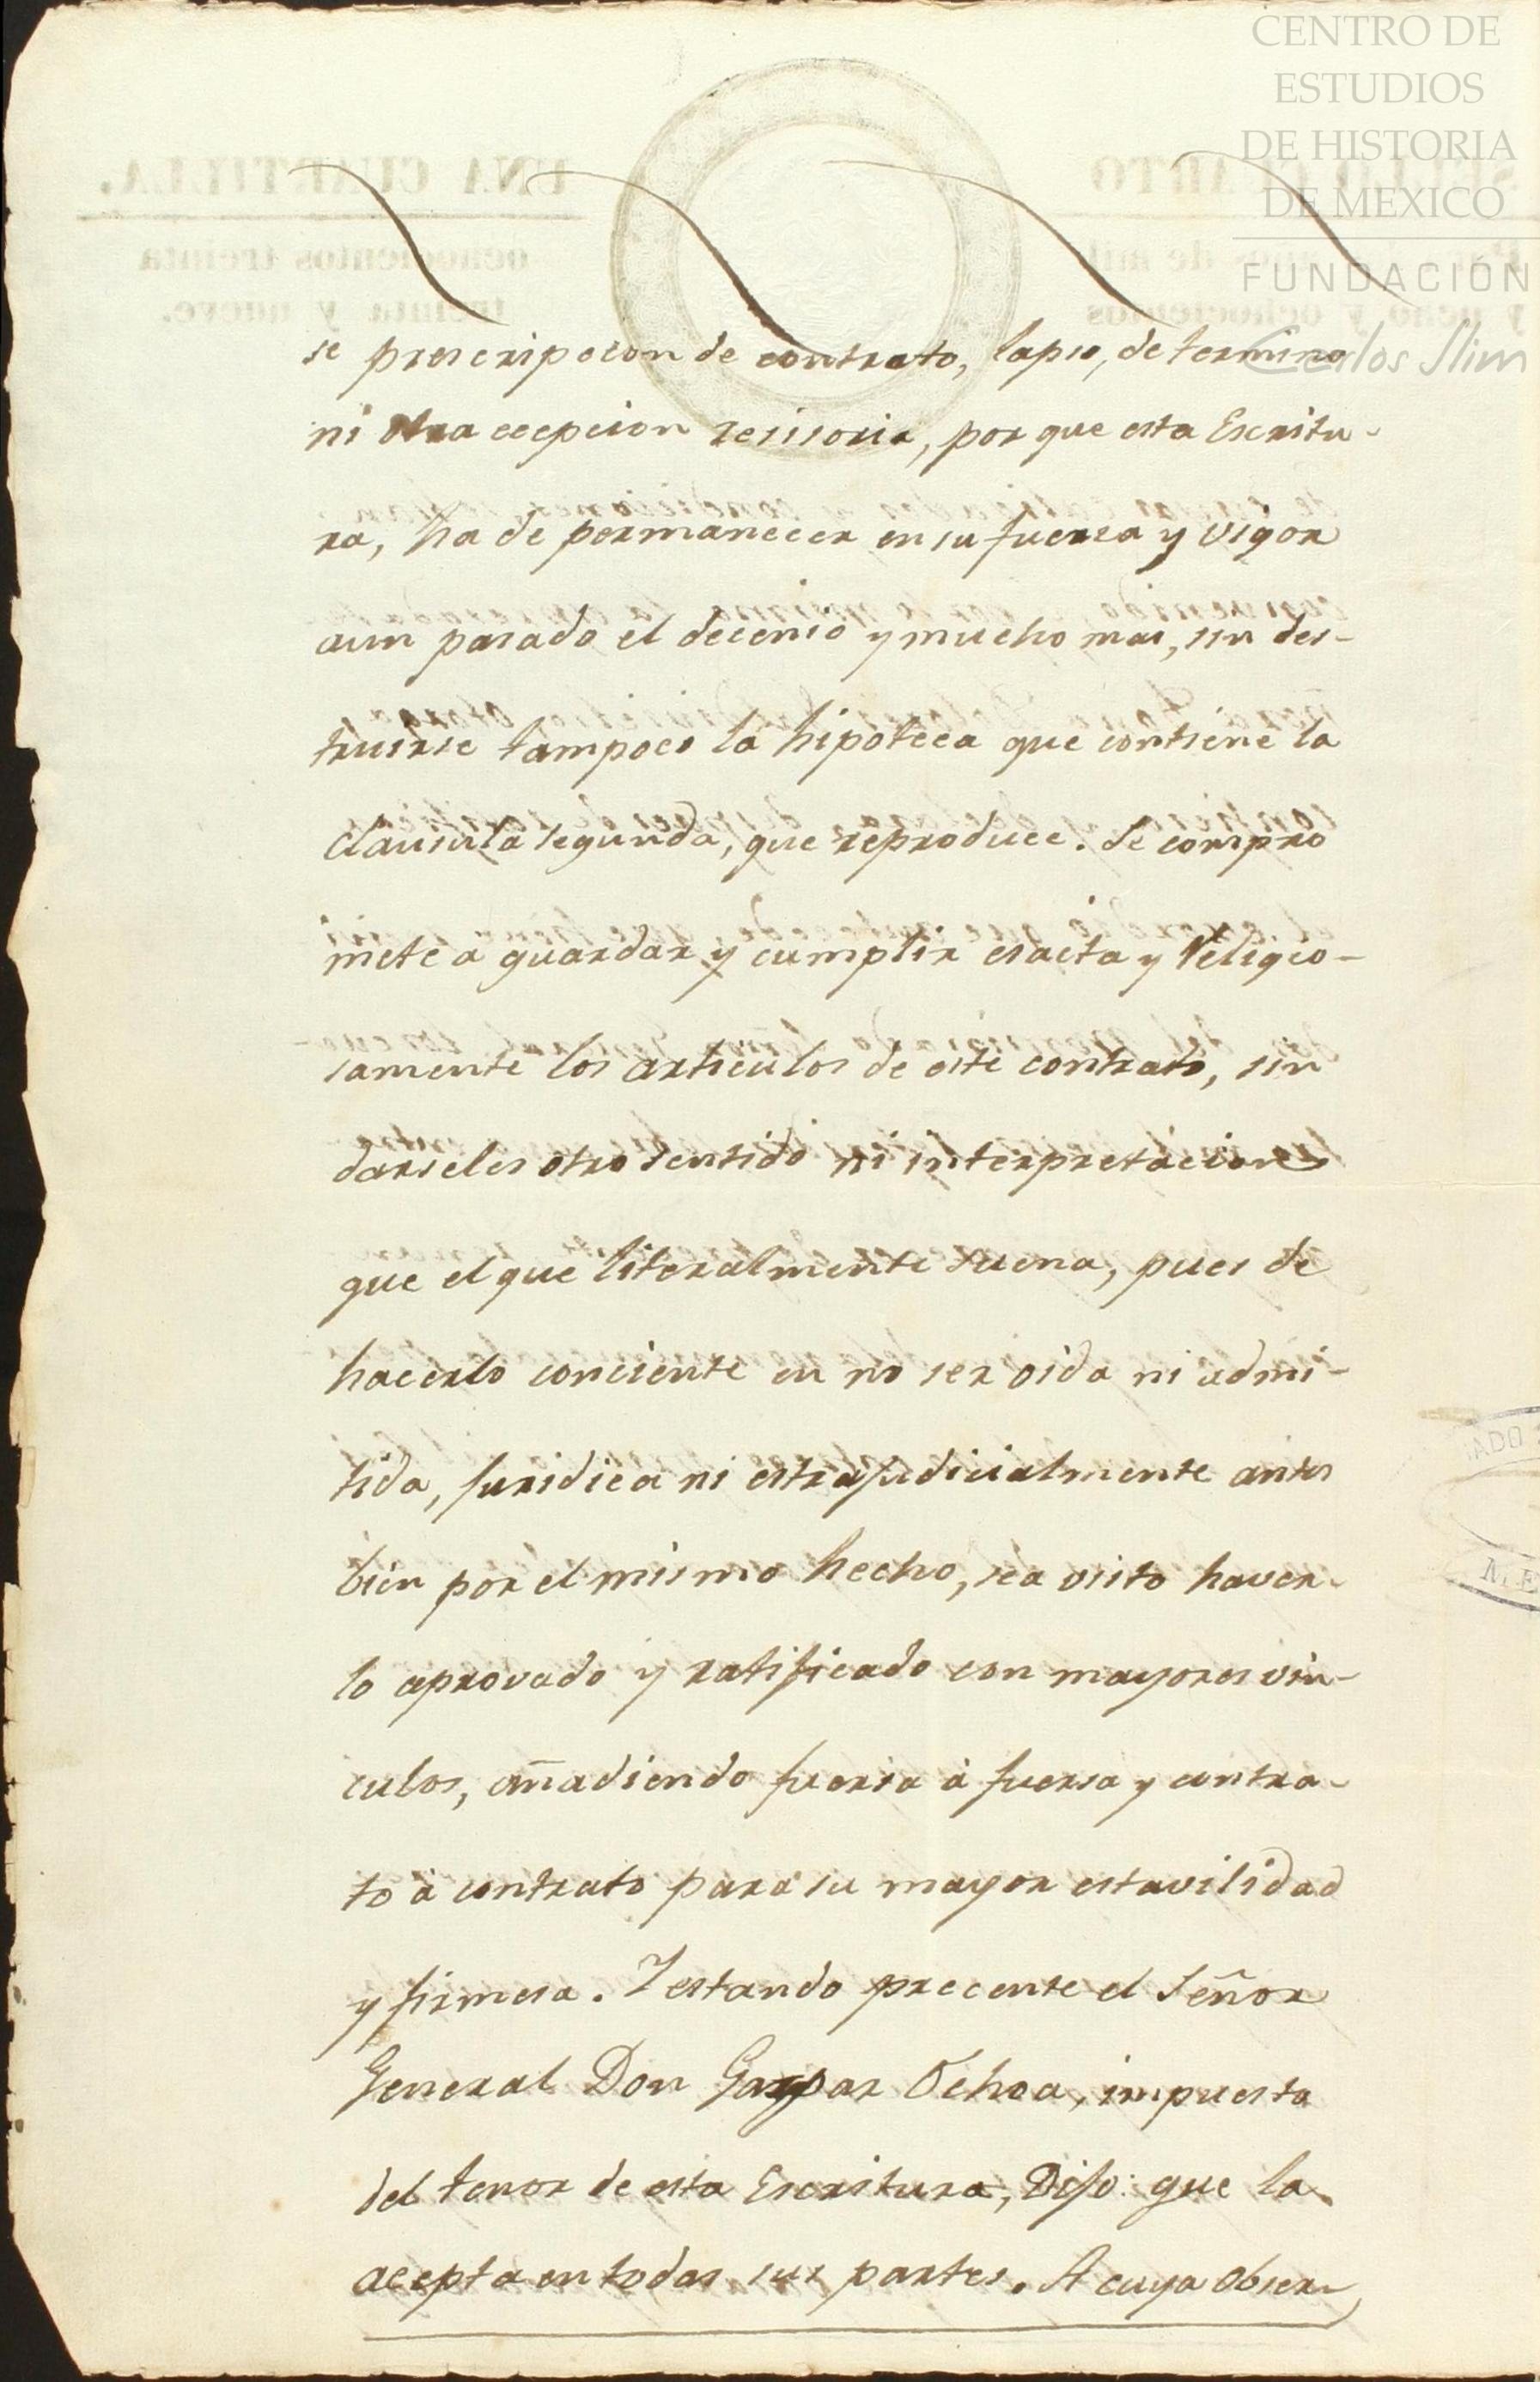 CENTRO DE
ESTUDIOS
DE HISTORIA
DE MEXICO
FUNDACIÓN
Carlos Slim
UNA CUARTILLA.
SELLO CUARTO
ochocientos treinta
treinta y nueve.
y ocho y ochocientos
se prescripcion de contrato, lapso, de termino
ni otra ecepcion resisoria, por que esta Escritu-
ra, ha de permanecer en su fuersa y vigor
aun pasado el decenio y mucho mas, sin des-
truirse tampoco la hipoteca que contiene la
clausula segunda, que reproduce. Se compro
mete a guardar y cumplir esacta y Religio-
samente los articulos de este contrato, sin
darseles otro sentido ni interpretacion
que el que literalmente suena, pues de
hacerlo conciente en no ser oida ni admi-
tida, juridica ni estrajudicialmente antes
bien por el mismo hecho, sea visto haver-
lo aprovado y ratificado con mayores vin-
culos, añadiendo fuersa á fuersa y contra-
to á contrato para su mayor estavilidad
y firmesa. Y estando precente el Señor
General Don Gaspar Ochoa, impuesta
del tenor de esta Escritura, Dijo: que la
acepta en todas sus partes. A cuya obser-